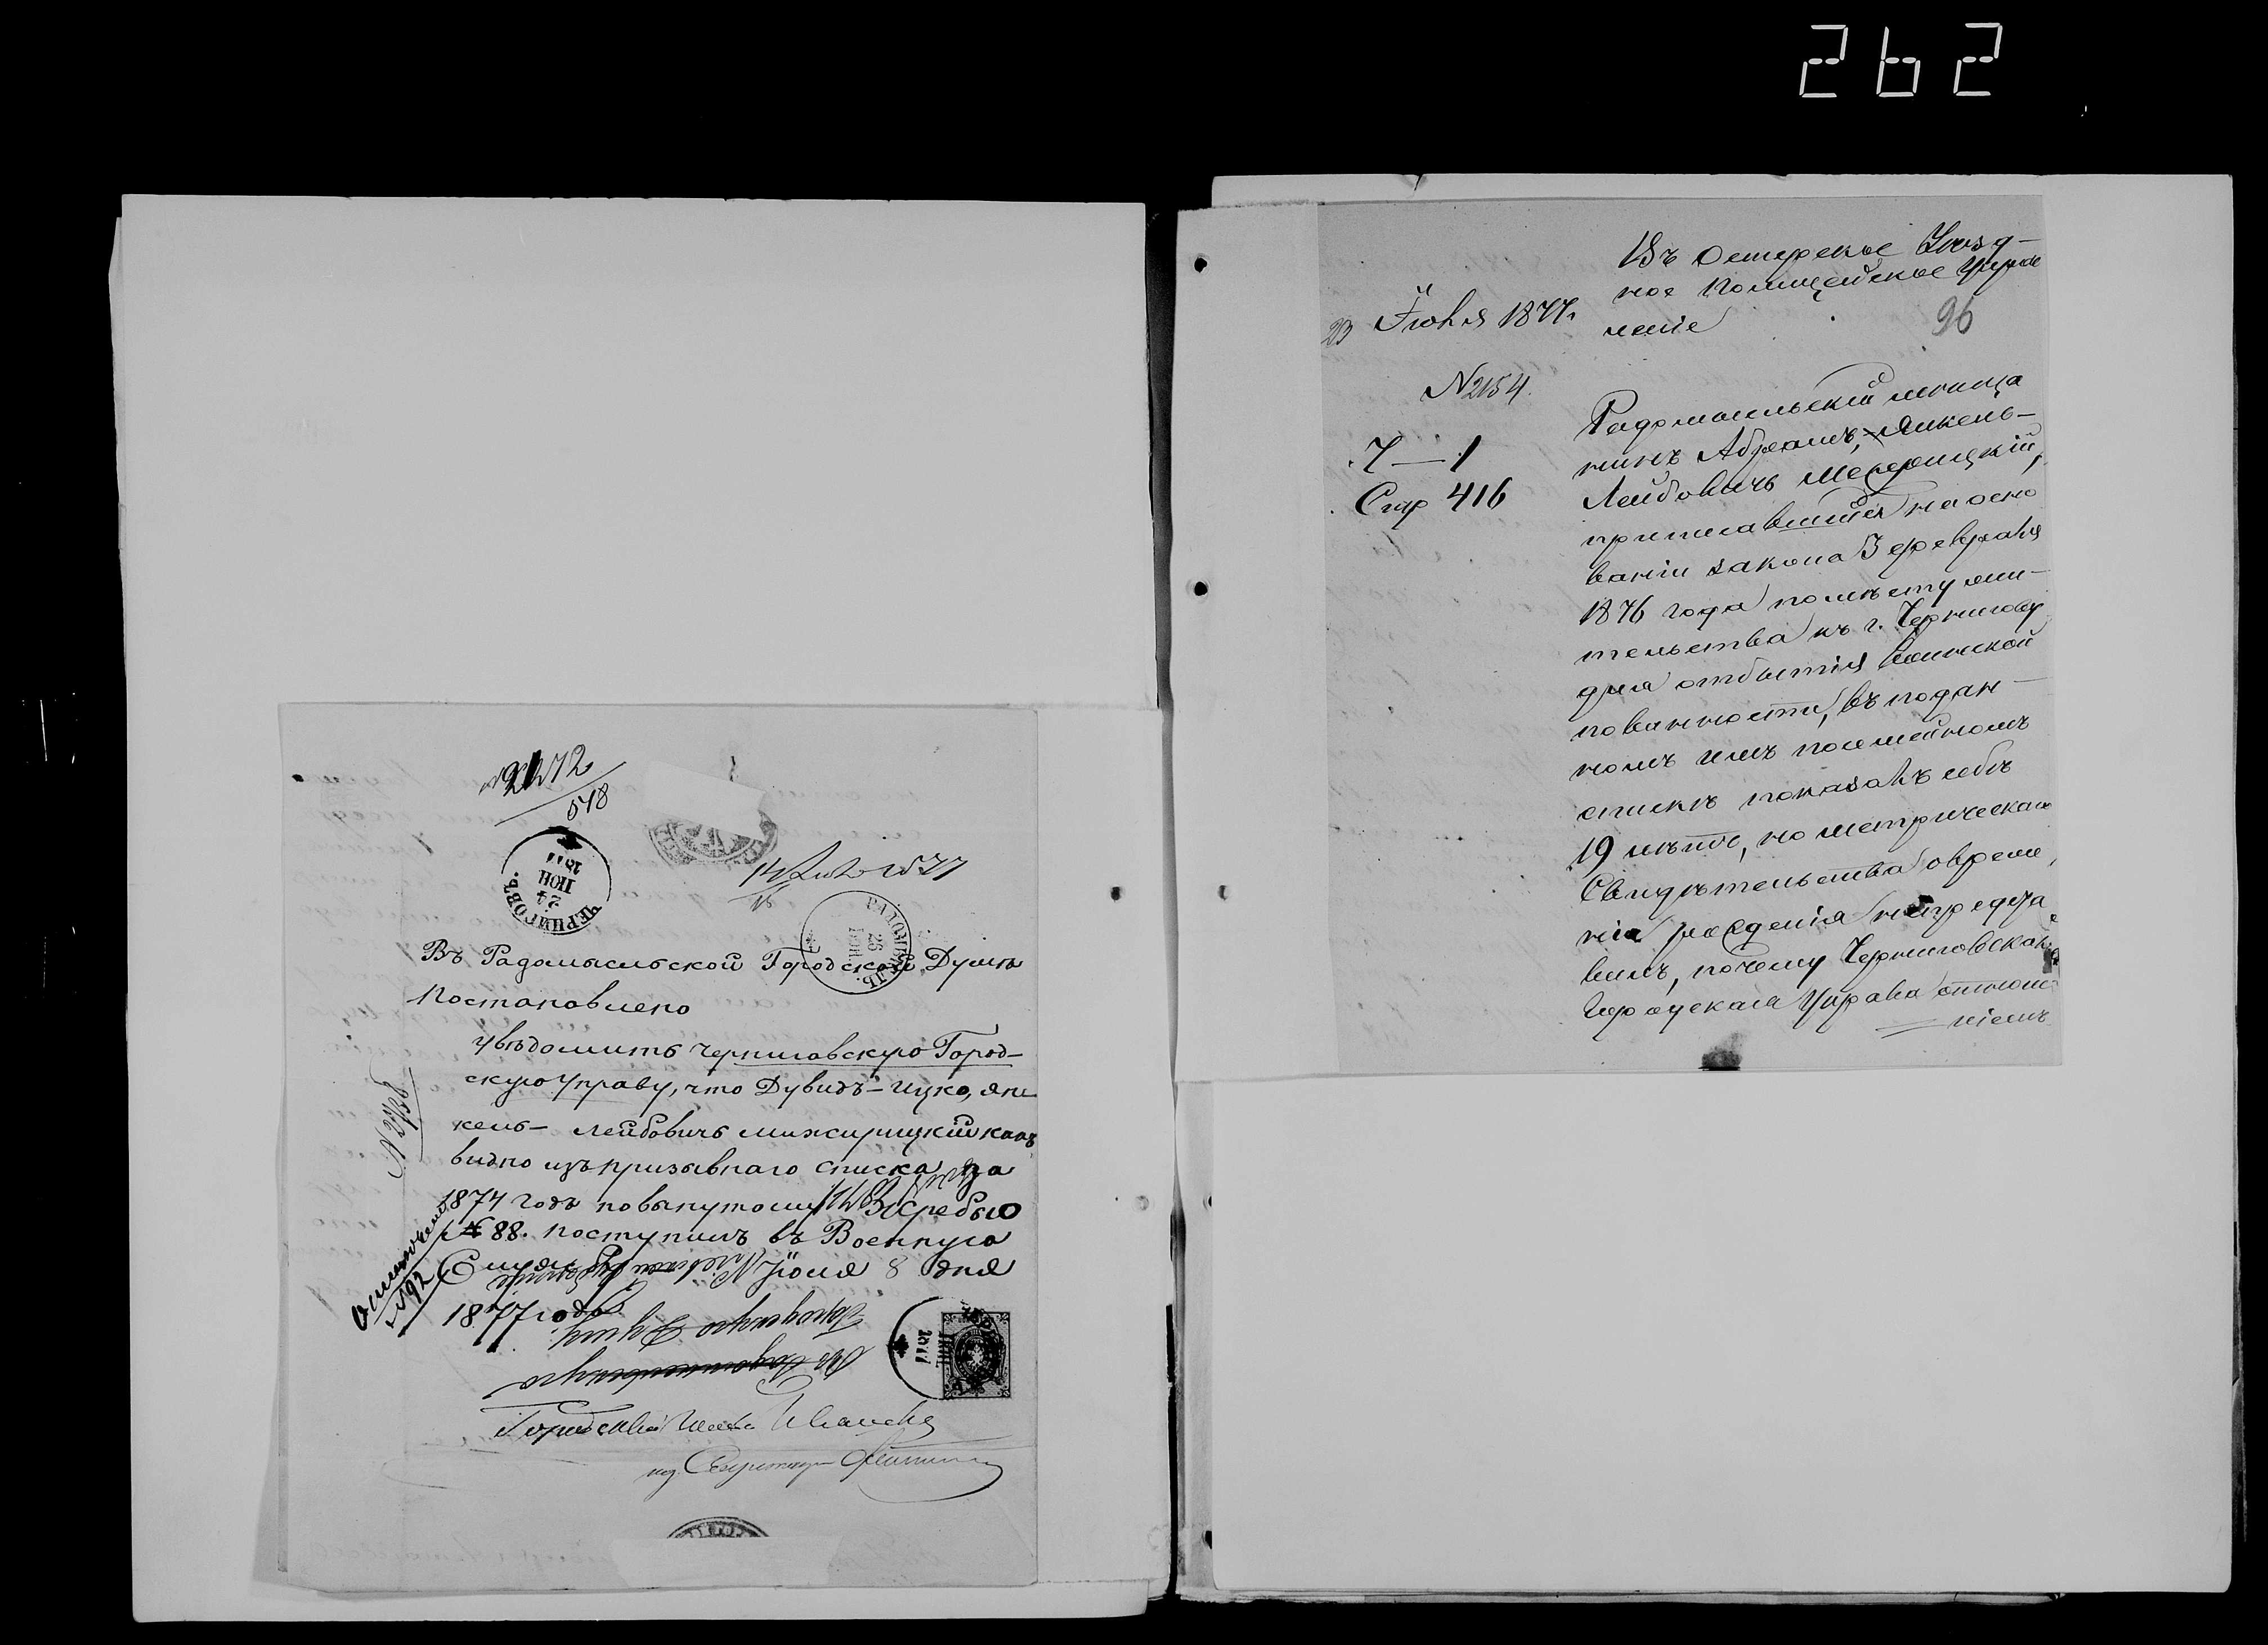 262
№ 2172
518
ЧЕРНИГОВЪ.
24
ІЮН
1877
РАДОМЫСЛЬ.
26
ІЮН.
Въ Радомысльской Городской Думѣ
Постановлено
увѣдомить Черниговскую Город-
скую Управу, что Дувидъ-Ицко, Ян
кель- Лейбовичъ Межирицкій какъ
видно изъ призывнаго списка за
1874 годъ по вынутому жребью
№ 88. поступилъ въ Военную
Службу Іюля 8 дня
1877 года
Городскую Думу.
Городской Голова
Секретарь
№ 2738
№ 192
Въ Остерское Уѣзд-
ное Полицейское Управ
леніе
96
23 Іюня 1877.
№ 2154.
Ч — 1
Стр 416
Радомысльскій мѣща
нинъ Абрамъ, Янкель-
Лейбовичъ Межерицкій,
приписавшійся на осно
ваніи закона 3 февраля
1876 года по мѣсту жи-
тельства къ г. Чернигову
для отбытія воинской
повинности, въ подан-
номъ имъ посемейномъ
спискѣ показалъ себѣ
19 лѣтъ, но метрическаго
Свидѣтельства о време
ни рожденія не предста
вилъ, почему Черниговская
Городская Управа отноше
ніемъ